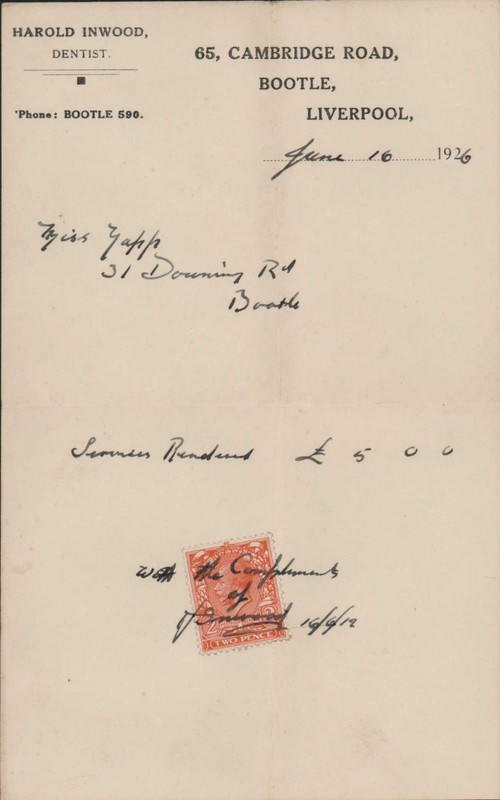 HAROLD INWOOD,
DENTIST.
'Phone: BOOTLE 590.
65, CAMBRIDGE ROAD,
BOOTLE,
LIVERPOOL,
June 16 1926
Miss Yapp
31 Downing Rd
Bootle
Services Rendered £ 5 0 0
With the Compliments
of
TWO PENCE